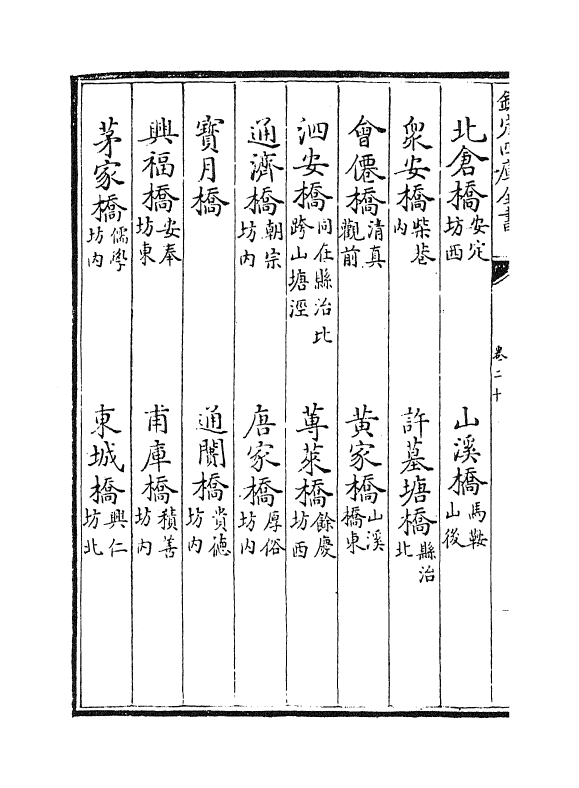 欽定四庫全書
卷二十
北倉橋安定坊西 山溪橋馬鞍山後
衆安橋柴巷内 許墓塘橋縣治北
會僊橋清真觀前 黃家橋山溪橋東
泗安橋同在縣治北跨山塘涇 蓴菜橋餘慶坊西
通濟橋朝宗坊内 唐家橋厚俗坊内
寶月橋 通闤橋貴德坊内
興福橋安奉坊東 甫庫橋積善坊内
茅家橋儒學坊内 東城橋興仁坊北